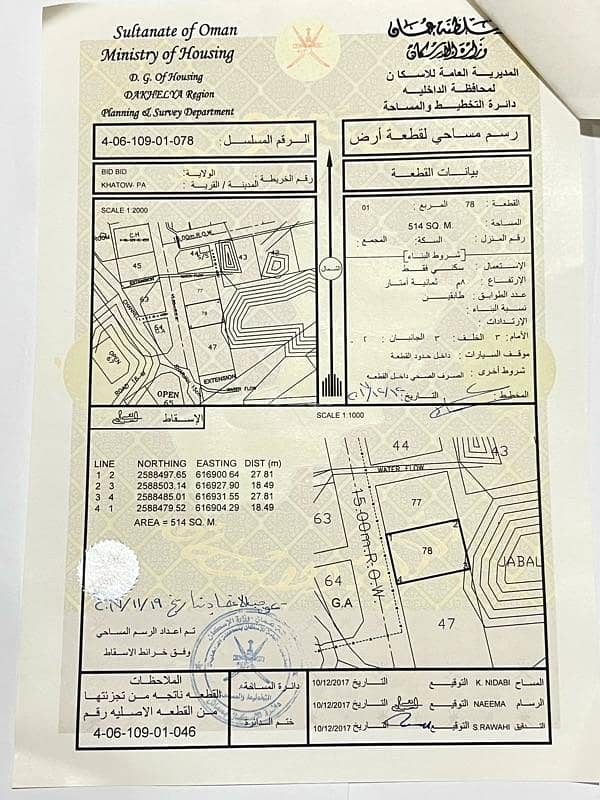 Sultanate of Oman
Ministry of Housing
D. G. Of Housing
DAKHELYA Region
Planning & Survey Department
سلطنة عمان
وزارة الإسكان
المديرية العامة للاسكان
لمحافظة الداخلية
دائرة التخطيط والمساحة
الرقم المسلسل : 4-06-109-01-078
رسم مساحي لقطعة أرض
BID BID الولاية:
KHATOW- PA المدينة / القرية : رقم الخريطة :
بيانات القطعة
SCALE 1:2000
القطعة : 78 المربع : 01
المساحة : 514 SQ. M.
رقم المنزل : السكة: المجمع :
شروط البناء
الإستعمال: سكني فقط
الإرتفاع : ٨م ثمانية أمتار
عدد الطوابق : طابقين
نسبة البناء :
الإرتدادات :
الأمام: ٣ الخلف: ٣ الجانبان : ٢
موقف السيارات : داخل حدود القطعة
شروط أخرى : الصرف الصحي داخل القطعة
المخطط: التاريخ:
الشمال
15.00m R.O.W.
C.H
45
44
S/S
43
42
EXTENSION
WATER FLOW
63
77
64
47
OPEN
EXTENSION
WATER FLOW
OPEN
65
الإسقاط
SCALE 1:1000
LINE NORTHING EASTING DIST (m)
1 2 2588497.65 616900.64 27.81
2 3 2588503.14 616927.90 18.49
3 4 2588485.01 616931.55 27.81
4 1 2588479.52 616904.29 18.49
AREA = 514 SQ. M.
44
43
WATER FLOW
77
63
15.00m.R.O.W.
1
2
78
4
3
JABAL
64
G.A
47
٢٠١٧/١١/١٩
تم اعداد الرسم المساحي
وفق خرائط الاسقاط
الملاحظات
القطعه ناتجه من تجزئتها
من القطعه الاصليه رقم
4-06-109-01-046
دائرة المساحة
ختم الدائرة
المساح K. NIDABI التوقيع التاريخ 10/12/2017
الرسام NAEEMA التوقيع التاريخ 10/12/2017
التدقيق S.RAWAHI التوقيع التاريخ 10/12/2017